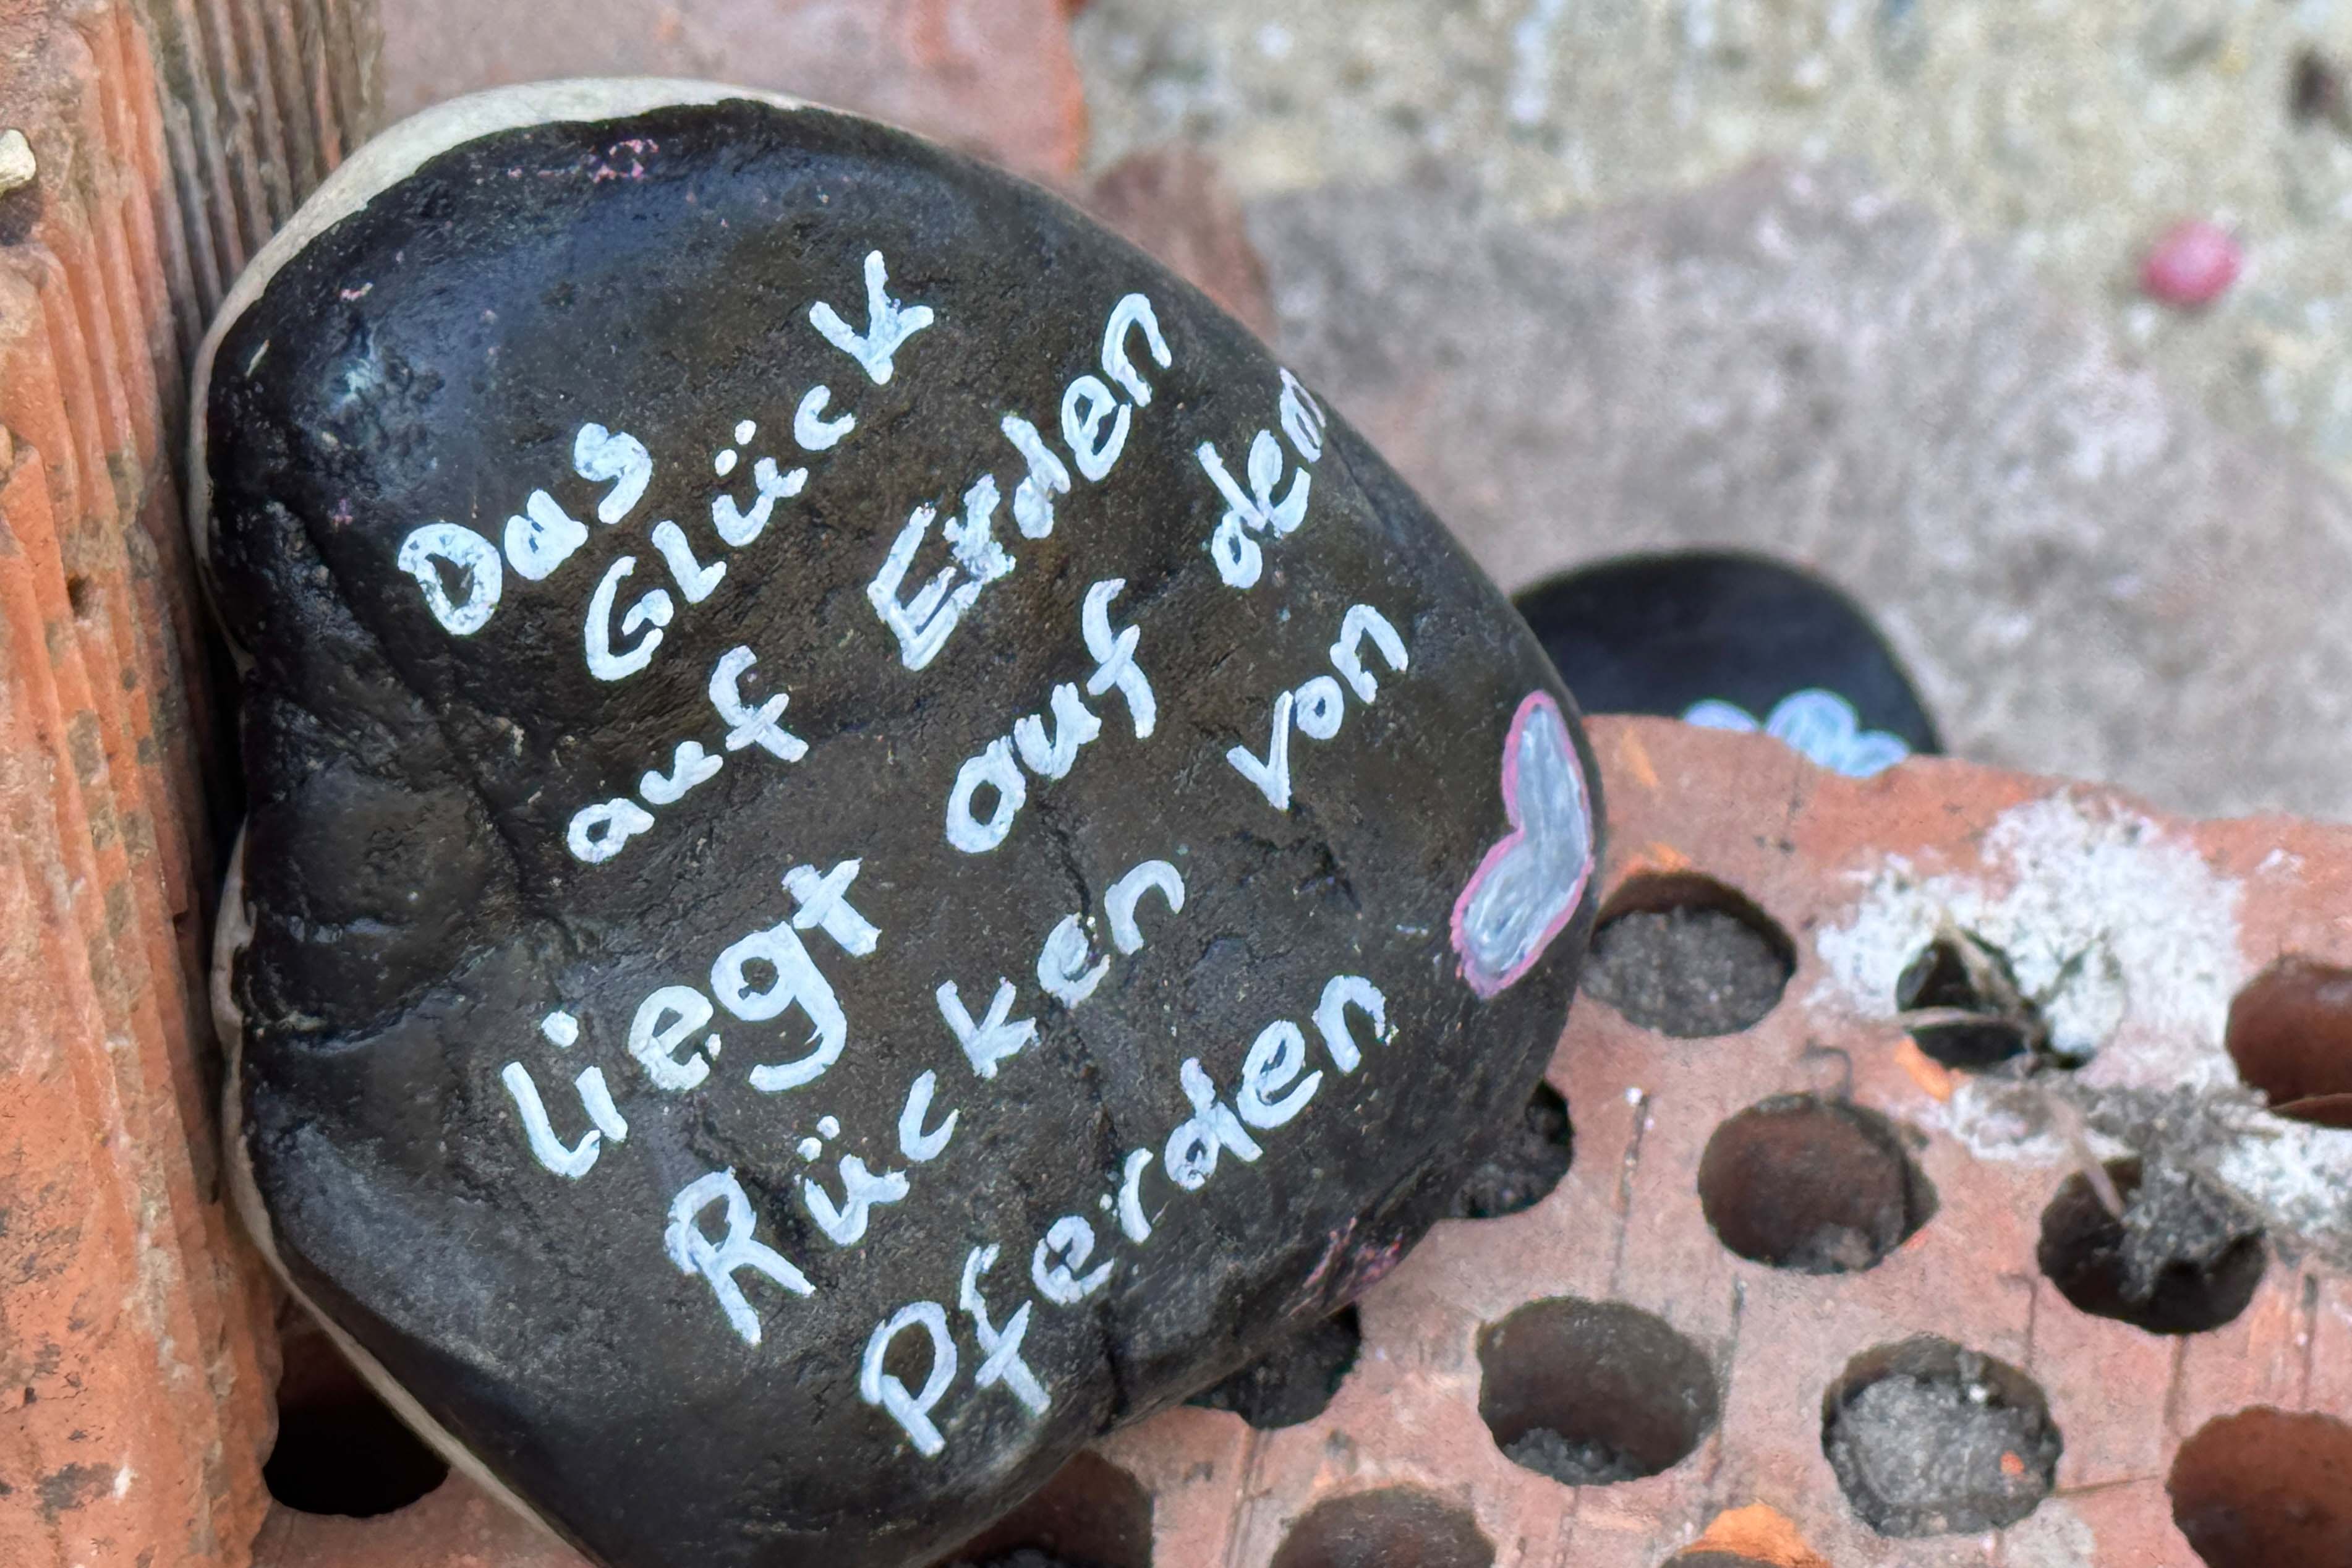 Das
Glück
auf Erden
liegt auf den
Rücken von
Pferden